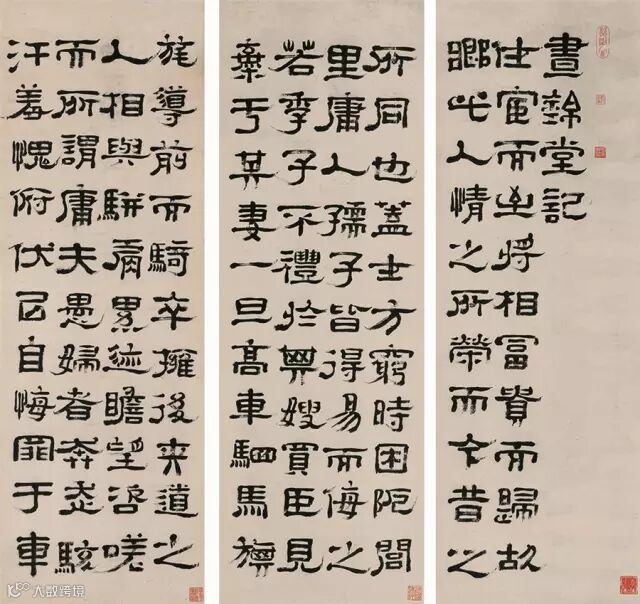 晝錦堂記
仕宦而至將相富貴而歸故
鄉此人情之所榮而今昔之
所同也蓋士方窮時困阨閭
里庸人孺子皆得易而侮之
若季子不禮於其嫂買臣見
棄于其妻一旦高車駟馬旗
旄導前而騎卒擁後夾道之
人相與駢肩累迹瞻望咨嗟
而所謂庸夫愚婦者奔走駭
汗羞愧俯伏以自悔罪于車
大数跨境